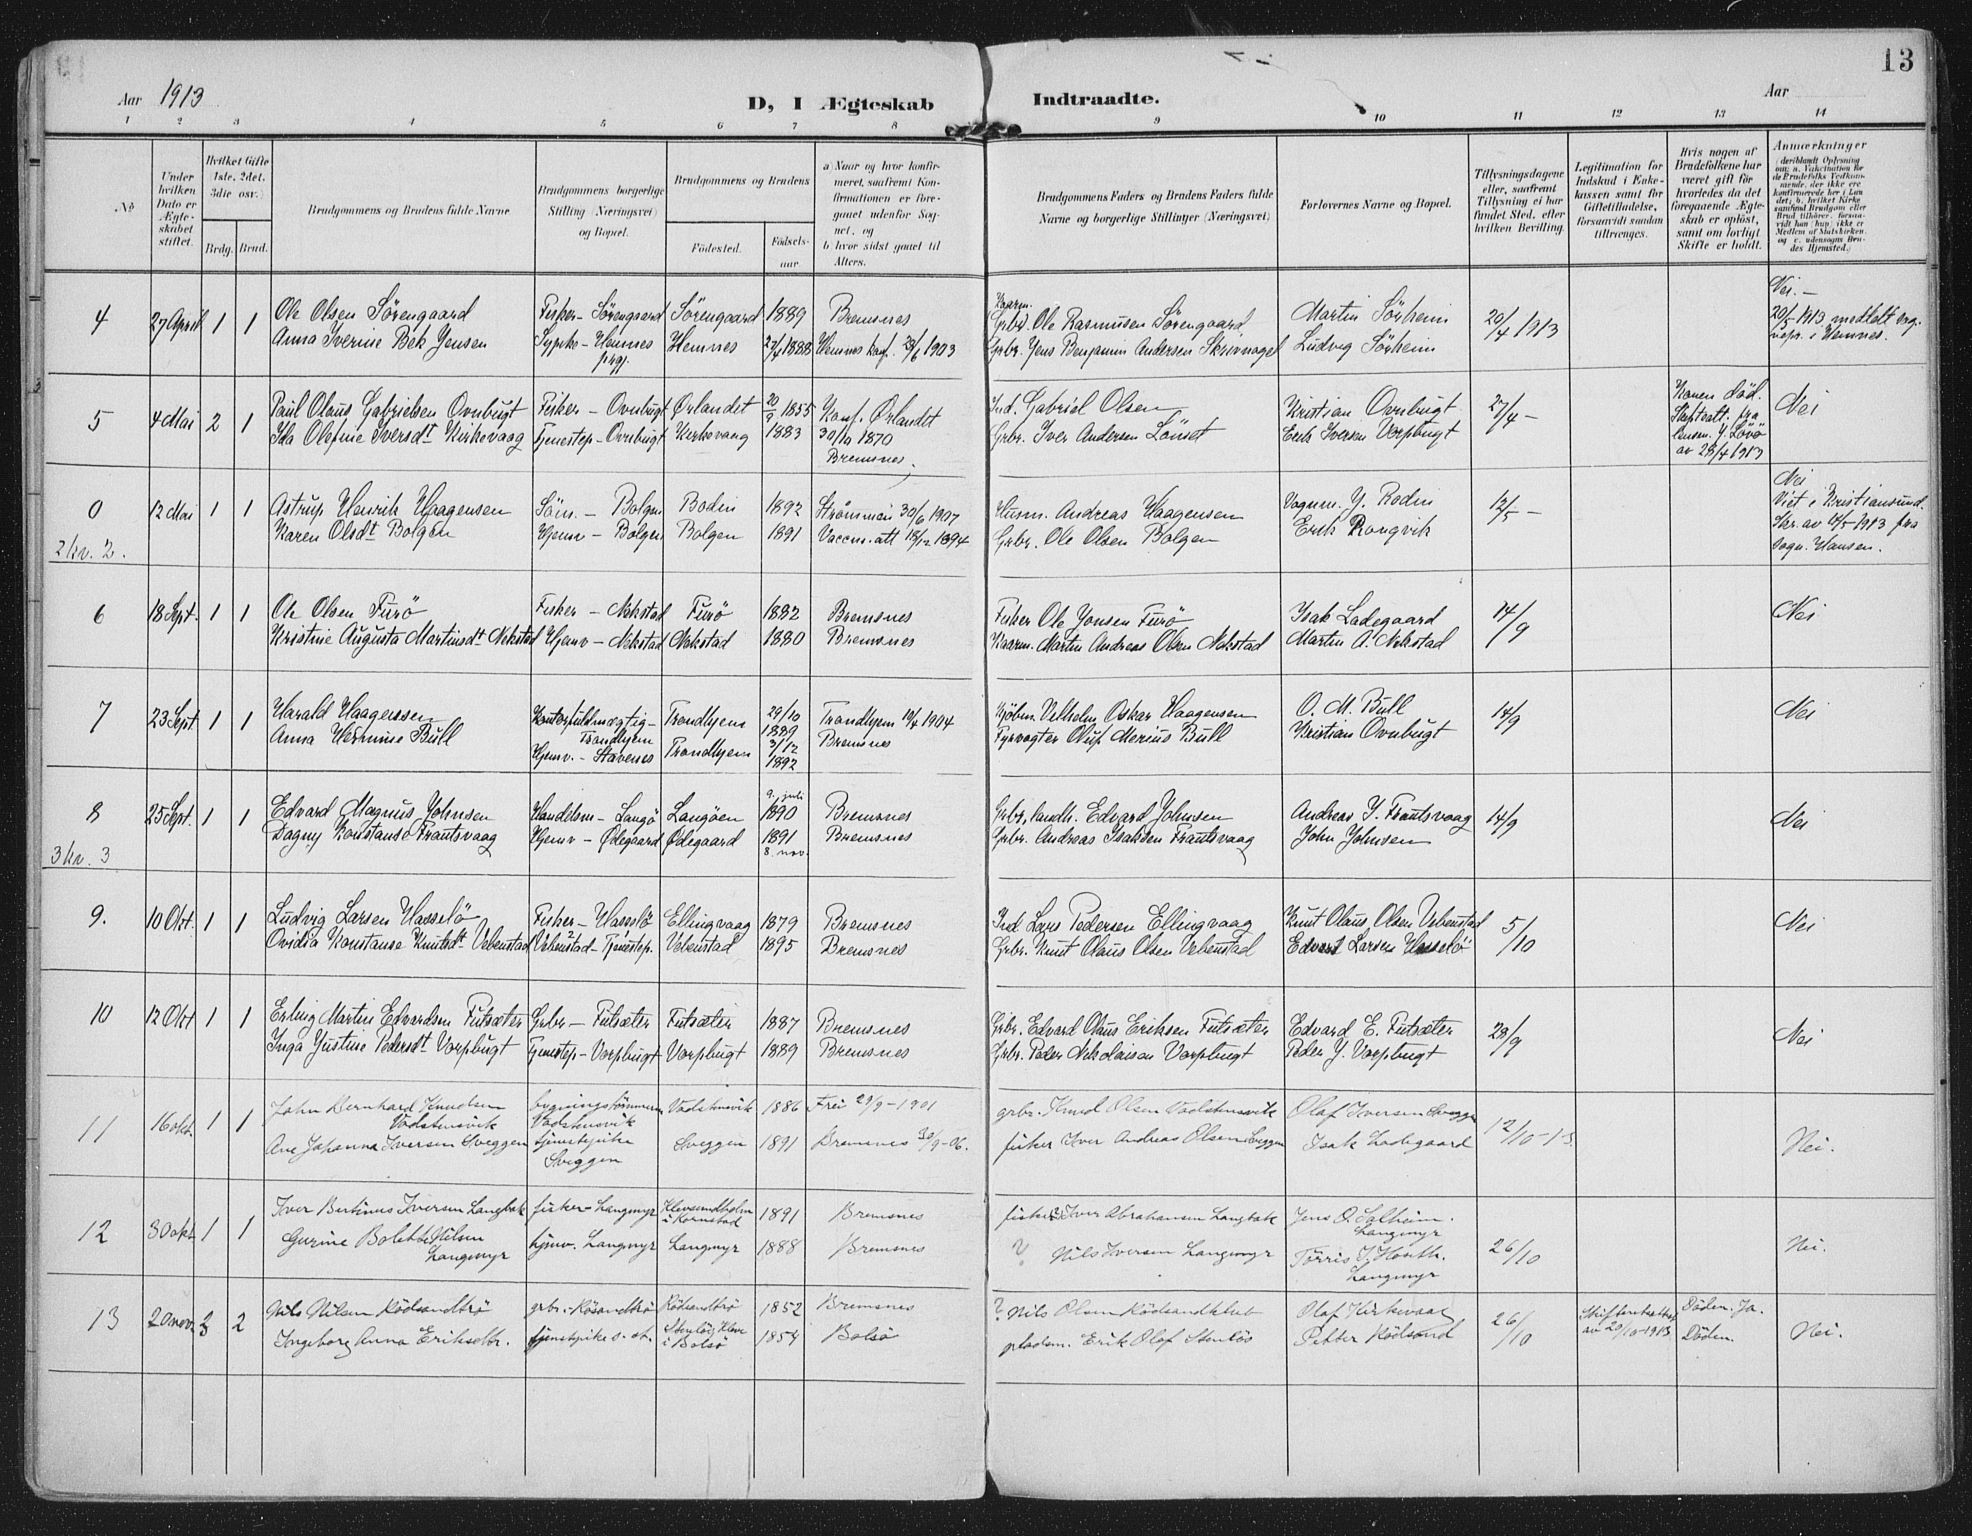 13
Aar 1913
D, I Ægteskab Indtraadte.
Aar
1 2 3 4 5 6 7 8 9 10 11 12 13 14
No
Under hvilken Dato er Ægteskabet stiftet.
Hvilket Gifte 1ste. 2det. 3die osv.
Brdg. Brud.
Brudgommens og Brudens fulde Navne
Brudgommens borgerlige Stilling (Næringsvei) og Bopæl.
Brudgommens og Brudens
Fødested.
Fødselsaar
a) Naar og hvor konfirmeret, saafremt Konfirmationen er foregaaet udenfor Sognet, og
b hvor sidst gaaet til Alters.
Brudgommens Faders og Brudens Faders fulde Navne og borgerlige Stillinger (Næringsvei)
Forlovernes Navne og Bopæl.
Tillysningsdagene eller, saafremt Tillysning ei har fundet Sted, efter hvilken Bevilling.
Legitimation for Indskud i Enkekassen samt for Giftetilladelse, forsaavidt saadan tiltrænges.
Hvis nogen af Brudefolkene har været gift før hvorledes da det foregaaende Ægteskab er opløst, samt om lovligt Skifte er holdt.
Anmærkninger
4 27 April 1 1
Ole Olsen Sörengaard Fisker - Sörengaard Sörengaard 1889 Bremsnes
Anna Iverine Bek Jensen Hemnes Hemnes 1888 Hemnes 1903
Grbd. Ole Rasmussen Sörengaard Martin Sörheim 20/4 1913 Nei. -
Grbr. Jens Benjamin Andersen Ludvig Sörheim
5 4 Mai 2 1
Paul Olaus Gabrielsen Ovnbugt Fisker - Ovnbugt Ørlandet 20/9 1855 Konf. Ørlandet
Ida Olefine Iversdt Kirkevaag Tjenestep - Ovnbugt Kirkevaag 1883 30/10 1870
Bremsnes
Ind. Gabriel Olsen Kristian Ovnbugt 27/4 - Nei
Grbr. Iver Andersen Lönset Erik Iversen Vorpbugt
Konen död.
Skifteatt. fra
Lensm. Y. Lövö
av 28/4 1913
0 12 Mai 1 1
2 kv. 2.
Astrup Henrik Haagensen Söm. - Bolgen Bodin 1892 Strömmen 30/6 1907
Karen Olsdt Bolgen Hjemv - Bolgen Bolgen 1891 Vaccin. att 18/12 1894
Husm. Andreas Haagensen 12/5 - Nei
Grbr. Ole Olsen Bolgen Erik Rongvik
Viet i Kristiansund.
Skr. av 14/5 1913 fra
Sogn. Hansen.
6 18 Sept. 1 1
Ole Olsen Furö Fisker - Nekstad Furö 1882 Bremsnes
Kristine Augusta Martinsdt Nekstad Hjemv - Nekstad Nekstad 1880 Bremsnes
Fisker Ole Jonsen Furö Isak Ladegaard 14/9 Nei
Kaarm. Martin Andreas Olsen Nekstad Martin A. Nekstad
7 23 Sept 1 1
Harald Haagensen Kontorfuldmægtig - Trondhjem Trondhjem 29/10 1889 Trondhjem 10/4 1904
Anna Hermine Bull Hjemv. - Stavenes Trondhjem 3/12 1892 Bremsnes
Kjöbm. Vilhelm Oskar Haagensen O. M. Bull 14/9 Nei
Fyrvogter Oluf Merius Bull Kristian Ovnbugt
8 25 Sept. 1 1
3 kv. 3
Edvard Magnus Johnsen Handelsm - Langö Langöen 9. juli 1890 Bremsnes
Dagny Konstanse Frantsvaag Hjemv - Ødegaard Ødegaard 1891 8. nov. Bremsnes
Grbr, handl. Edvard Johnsen Andreas J. Frantsvaag 14/9 Nei
Grbr. Andreas Isaksen Frantsvaag John Johnsen
9. 10 Okt. 1 1
Ludvig Larsen Hasselö Fisker - Hasselö Ellingvaag 1879 Bremsnes
Ovidia Konstanse Knutsdt Vebenstad Vebenstad - Tjenestep. Vebenstad 1895 Bremsnes
Ind Lars Pedersen Ellingvaag Knut Olaus Olsen Vebenstad 5/10 Nei
Grbr. Knut Olaus Olsen Vebenstad Edvart Larsen Hasselö
10 12 Okt 1 1
Erling Martin Edvardsen Futsæter Grbr - Futsæter Futsæter 1887 Bremsnes
Inga Justine Pedersdt Vorpbugt Tjenestep - Vorpbugt Vorpbugt 1889 Bremsnes
Grbr. Edvard Olaus Eriksen Futsæter Edvard E. Futsæter 28/9 Nei
Grbr. Peder Nikolaisen Vorpbugt Peder J. Vorpbugt
11 16 okt. 1 1
John Bernhard Knudsen Vadstensvik Vadstensvik Vadstensvik 1886 Frei 29/9 - 1901
Ane Johanna Iversen Sveggen tjenstpike Sveggen Sveggen 1891 Bremsnes 30/9 - 06.
grbr. Knud Olsen Vadstensvik Olaf Iversen Sveggen 12/10 - 13. Nei.
fisker Iver Andreas Olsen Sveggen Isak Ladegaard
12 30 okt. 1 1
Iver Bertinus Iversen Langbak fisker - Langmyr i Kornstad 1891 Bremsnes
Gurine Bolette Nilsen Langmyr hjmv. Langmyr Langmyr 1888 Bremsnes
fisker Iver Abrahamsen Langbak Jens O. Solheim. Langmyr 26/10 Nei.
? Nils Iversen Langmyr Langmyr
13 20 nov. 3 2
Nils Nilsen Rödsandtrö grbr. - Rösandtrö Rödsandtrö 1852 Bremsnes
Ingeborg Anna Eriksdtr. tjenstpike s. st. i Bolsö 1854 Bolsö
? Nils Olsen Olaf Kirkvaag 26/10 av 20/10 - 1913 Döden. Ja. Nei.
pladsm. Erik Olaf Stenlös Petter Rödsand Döden.